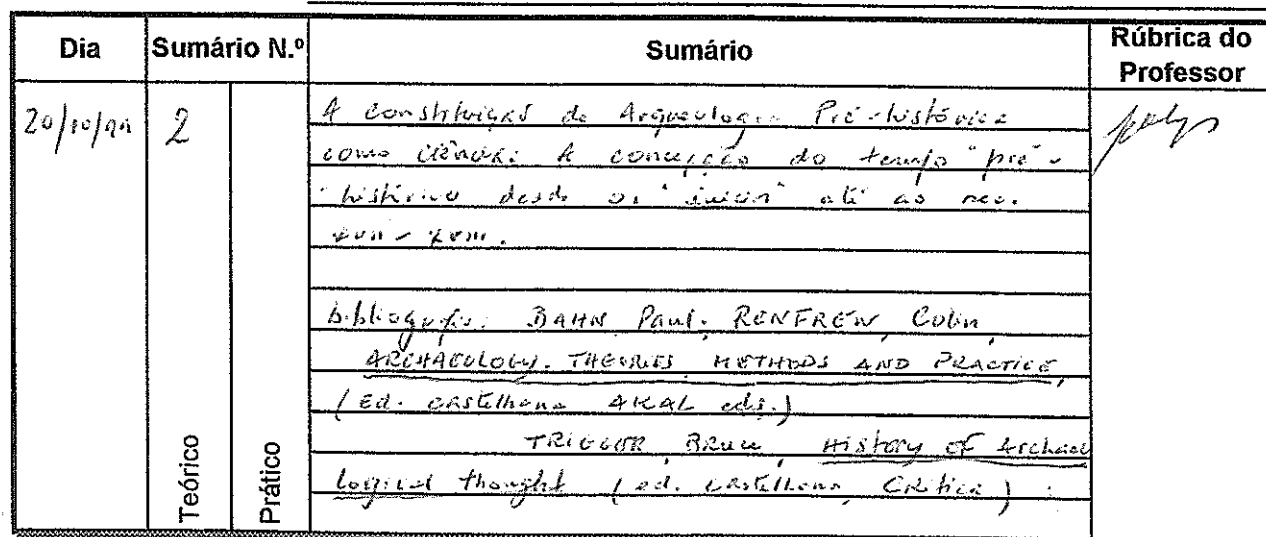 Dia Sumário N.º Sumário Rúbrica do Professor
20/10/ 2
A constituição da Arqueologia Pré-histórica
como ciência: A concepção do tempo "pré-
histórico desde os "inícios" até ao séc.
XVII - XVIII.
bibliografia: BAHN, Paul, RENFREW, Colin,
ARCHAEOLOGY. THEORIES, METHODS AND PRACTICE,
(Ed. castelhana AKAL eds.)
TRIGGER, Bruce, History of Archaeo
logical thought (ed. castelhana, Crítica)
Teórico
Prático